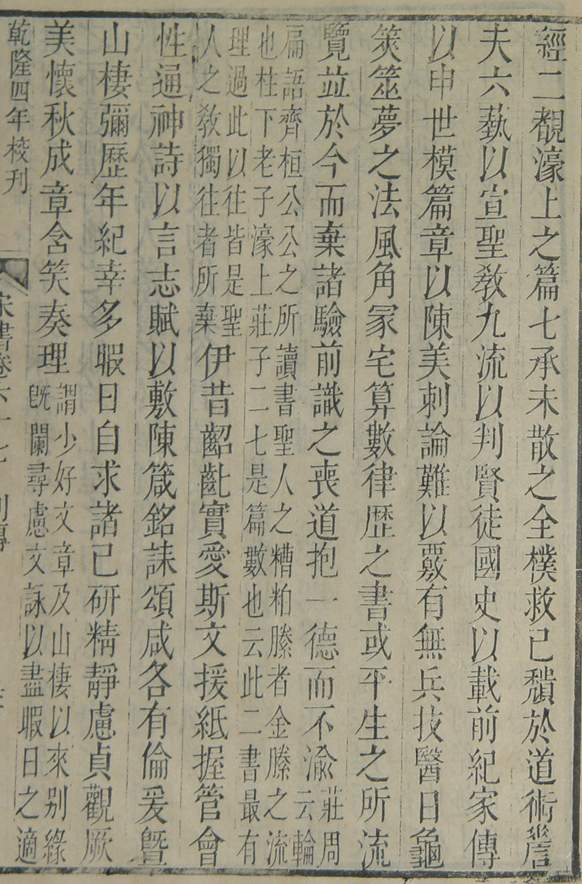 經二覩濠上之篇七承未散之全樸救已穨於道術嗟
夫六藝以宣聖教九流以判賢徒國史以載前紀家傳
以申世模篇章以陳美刺論難以覈有無兵技醫日龜
筴筮夢之法風角冢宅算數律歷之書或平生之所流
覽並於今而棄諸驗前識之喪道抱一德而不渝莊周云輪
扁語齊桓公公之所讀書聖人之糟粕縢者金縢之流
也柱下老子濠上莊子二七是篇數也云此二書最有
理過此以往皆是聖人之敎獨往者所棄伊昔齠齔實愛斯文援紙握管會
性通神詩以言志賦以敷陳箴銘誄頌咸各有倫爰曁
山棲彌歷年紀幸多暇日自求諸己研精靜慮貞觀厥
美懷秋成章含笑奏理謂少好文章及山棲以來別緣
旣闌尋慮文詠以盡暇日之適
乾隆四年校刊
宋書卷六十七
列傳